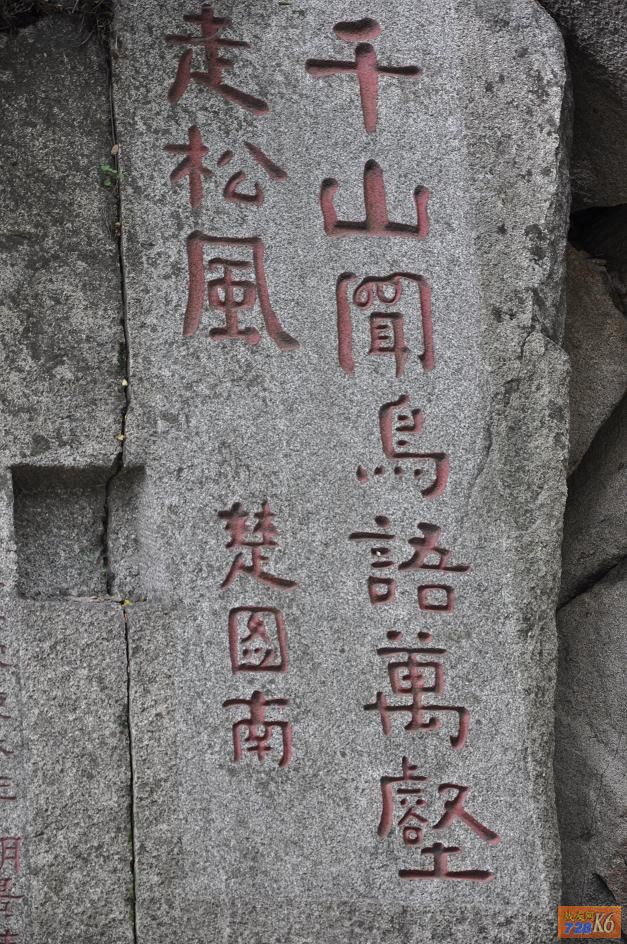 千山聞鳥語萬壑
走松風
楚国南
728K6